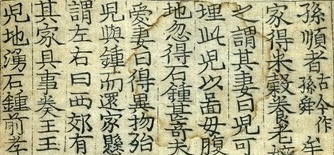 孫順者古今作孫舜牟
家得米穀養老孃
之謂其妻曰兒可
埋此兒以啚母腹
地忽得石鍾甚奇夫
愛妻曰得異物殆
兒與鍾而還家懸
謂左右曰西郊有
其家具事奏王王
兒地湧石鍾前孝